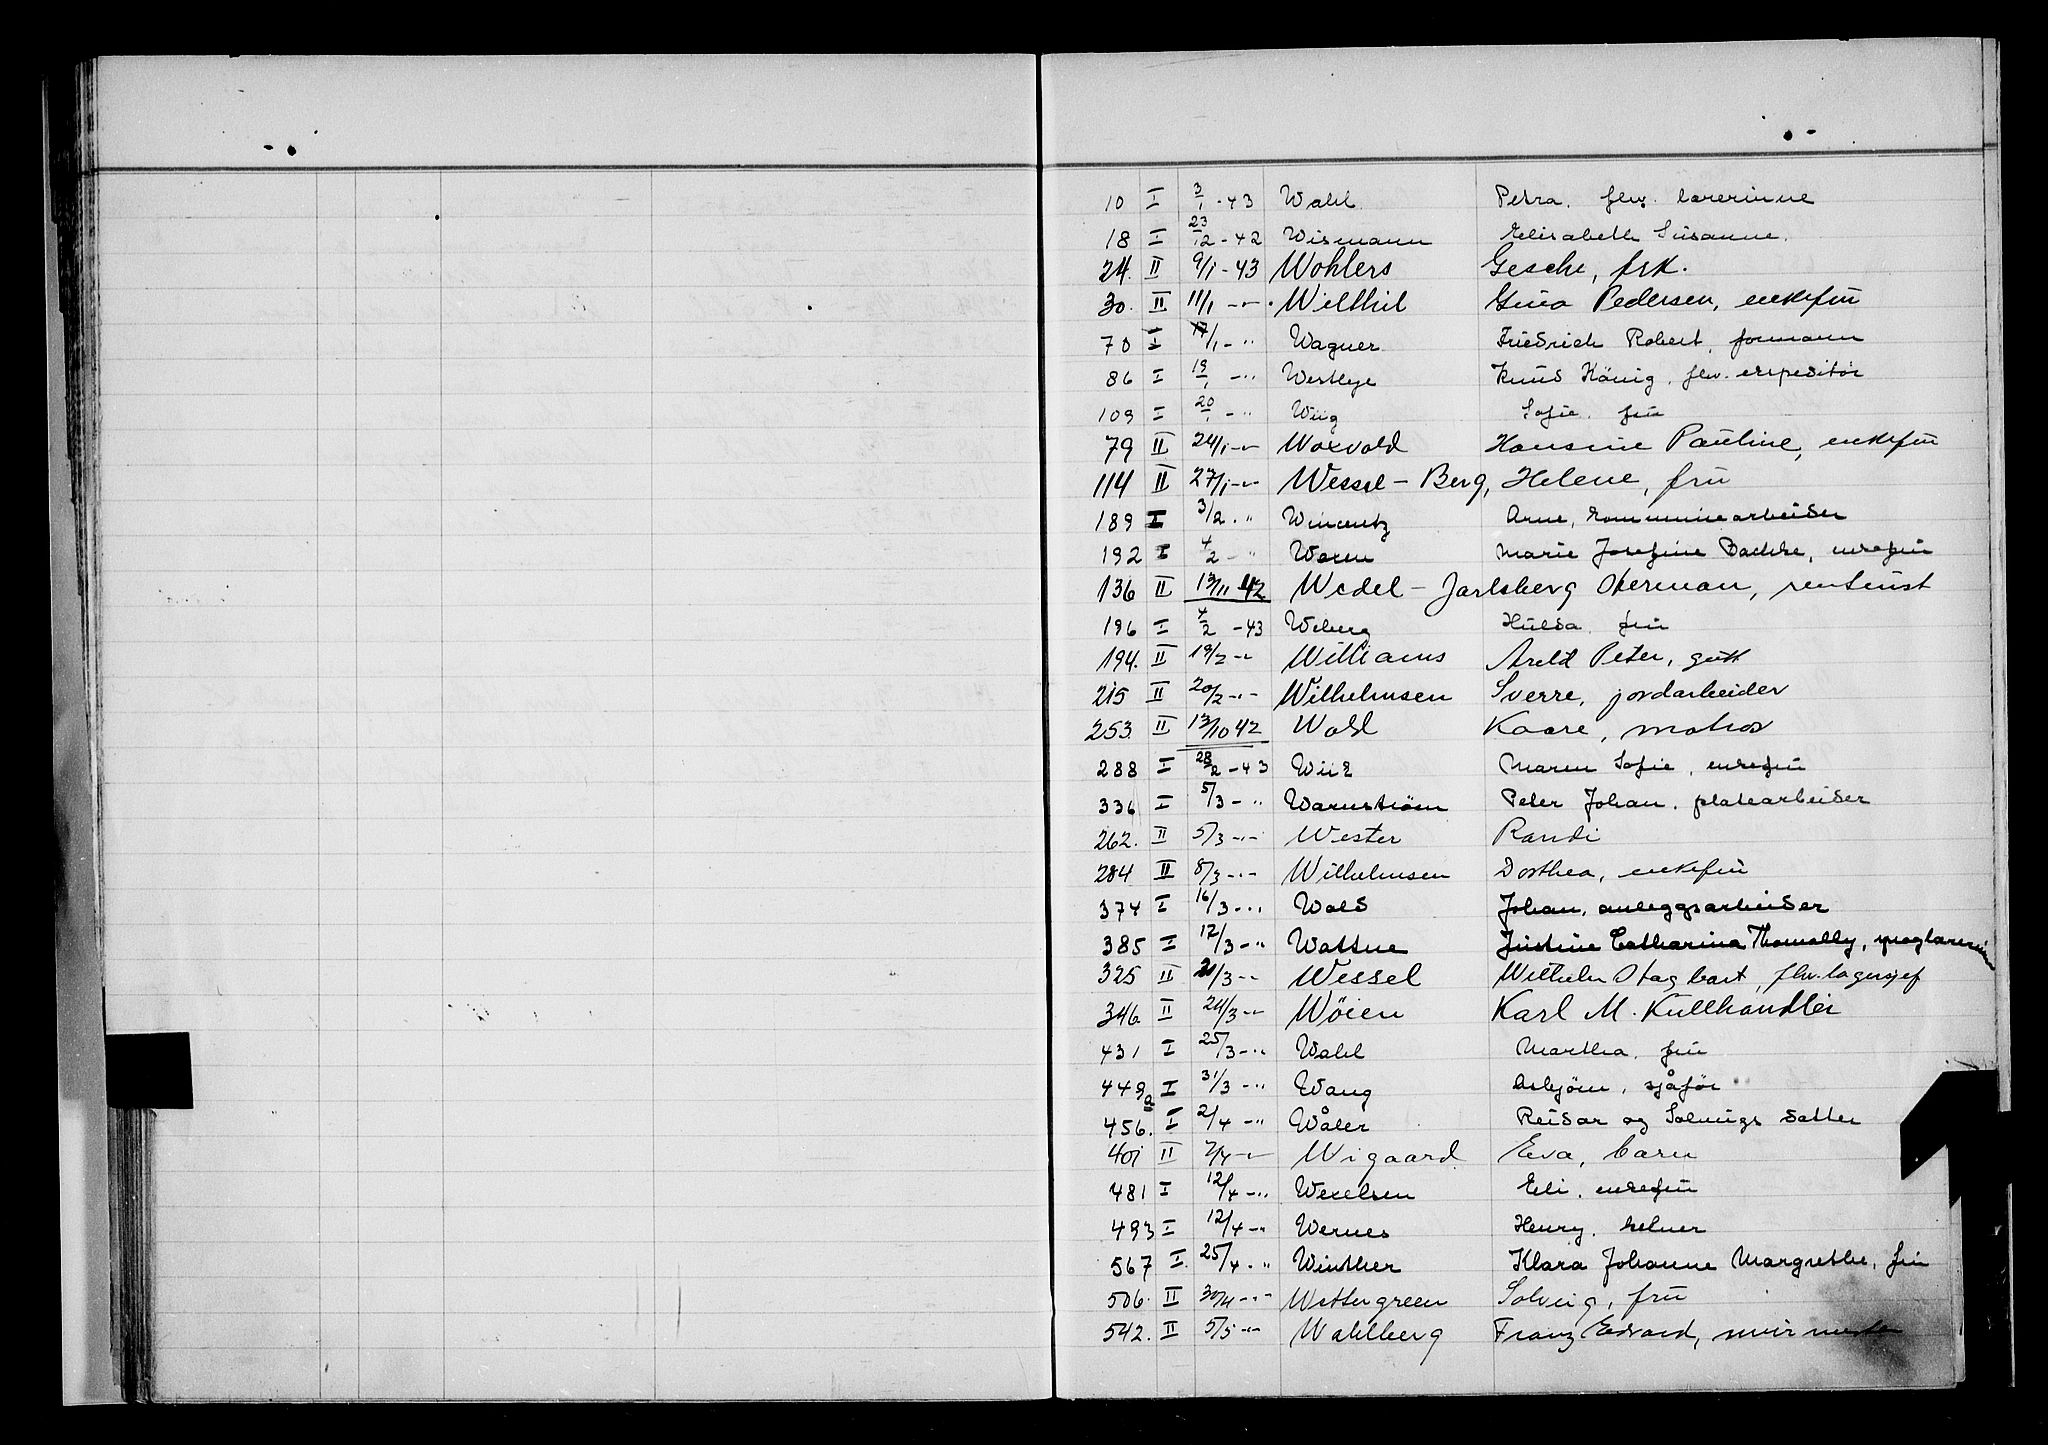 10 I 3/1 - 43 Wahl Petra. fhv. lærerinne
18 I 23/12 - 42 Wismann Elisabeth Susanne.
24. II 9/1 - 43 Wohlers Gesche, frk.
30. II 11/1 - " Gina Pedersen, enkefru
70 I 17/1 - " Wagner Friedrich Robert, formann
86 I 19/1 - " Westlye Knud König, fhv. expeditør
109 I 20/1 - " Wiig Sofie, fru
79 II 24/1 - " Woxvold Hansine Pauline, enkefru
114 II 27/1 - " Wessel - Berg, Helene, fru
189 I 3/2 - " Wincentz Arne, kommunearbeider
192 I 4/2 - " Waren Marie Josefine Bachke, enkefru
136 II 13/11 42 Wedel - Jarlsberg Herman, rentenist
196 I 4/2 - 43 Wiberg Hulda, fru
194. II 19/2 - " Williams Arild Peter, gutt
215 II 20/2 - " Wilhelmsen Sverre, jordarbeider
253. II 13/10 42 Wold Kaare, matros
288 I 28/2 - 43 Wiik Maren Sofie, enkefru
336 I 5/3 - " Warnstrøm Peter Johan, platearbeider
262. II 5/3 - " Wester Randi
284 II 8/3 - " Wilhelmsen Dorthea, enkefru
374 I 16/3 - " Wold Johan, anleggsarbeider
385 I 17/3 - " Wattne Justine Catharina
325 II 21/3 - " Wessel Wilhelm Stag bart, fhv. lagersjef
346. II 24/3 - " Wøien Karl M. Kullhandler
431 I 25/3 - " Wahl Martha, fru
449a I 31/3 - " Wang Asbjørn, sjåfør
456. I 2/4 - " Wåler Reidar og Solveigs datter
401 II 7/4 - " Wigaard Eva, barn
481 I 12/4 - " Wexelsen Eli, enkefru
493 I 12/4 - " Wernes Henry, kelner
567 I 25/4 - " Winther Klara Johanne Margrethe, fru
506. II 30/4 - " Wettergreen Solveig, fru
542. II 5/5 - " Wahlberg Franz Edvard, murmester